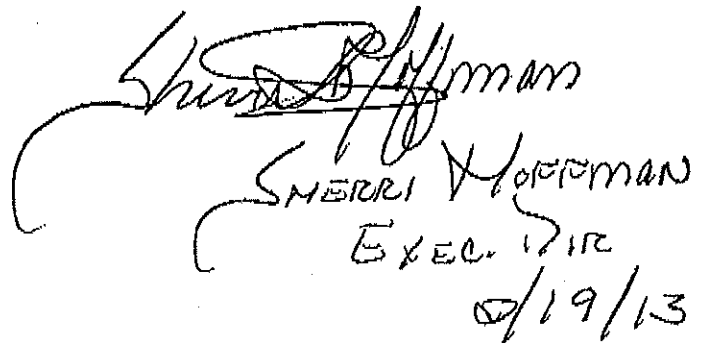 Sherri Hoffman
SHERRI HOFFMAN
EXEC. DIR
8/19/13